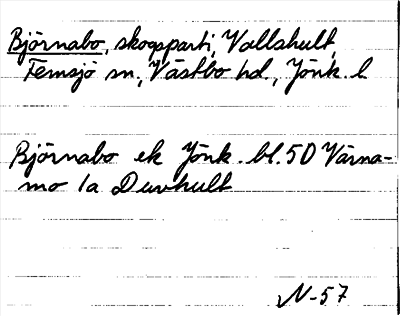 Björnabo, skogsparti, Vallshult,
Femsjö sn., Västbo hd., Jönk. l
Björnabo ek Jönk. bl. 50 Värna-
mo 1a Duvhult
N-57